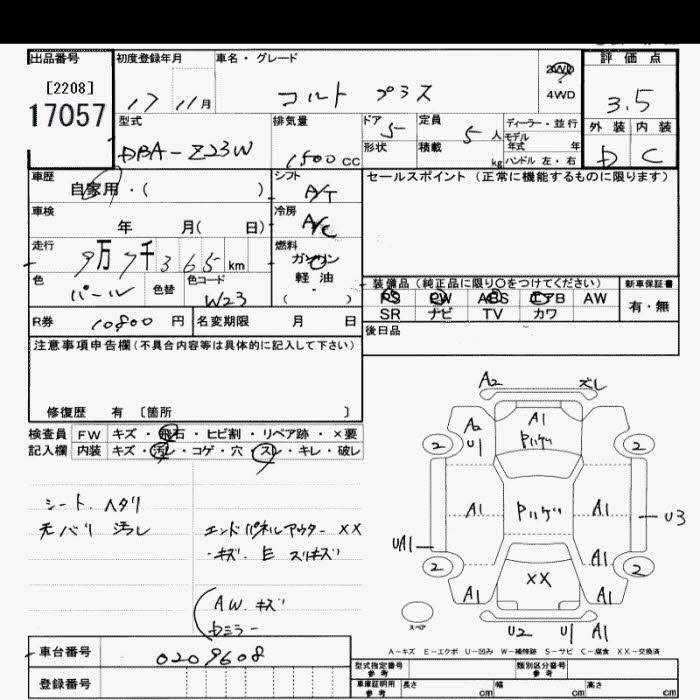 出品番号
[2208]
17057
初度登録年月
17 11月
車名・グレード
コルト プラス
2WD
4WD
評価点
3.5
外装 内装
D C
型式
DBA-Z23W
排気量
1500 CC
ドア 5
形状
定員 5 人
積載 kg
ディーラー・並行
モデル
年式 年
ハンドル 左・右
車歴
自家用・( )
シフト
A/T
セールスポイント (正常に機能するものに限ります)
車検
年 月( 日)
冷房
A/C
走行
9万7千365 km
燃料
ガソリン
軽・油
( )
色
パール
色替
色コード
W23
装備品 (純正品に限り〇をつけてください)
PS PW ABS エアB AW
SR ナビ TV カワ
新車保証書
有・無
R券 10800 円
名変期限 月 日
後日品
注意事項申告欄(不具合内容等は具体的に記入して下さい)
修復歴 有 〔箇所 〕
検査員
記入欄
FW キズ・飛石・ヒビ割・リペア跡・×要
内装 キズ・汚レ・コゲ・穴・スレ・キレ・破レ
シート ヘタリ
天バリ 汚レ
エンドパネルアウター XX
・キズ E スリキズ
AW. キズ
Dミラー
A2 ズレ
A2 U1
A1
2 2
A1 A1
U3
UA1
A1
2 2
XX
A1 A1
U2 U1 A1
スペア
A-キズ E-エクボ U-凹み W-補修跡 S-サビ C-腐食 XX-交換済
車台番号 0209608
登録番号
型式指定番号
参考
類別区分番号
参考
車庫証明用
参考
長さ cm
幅 cm
高さ cm